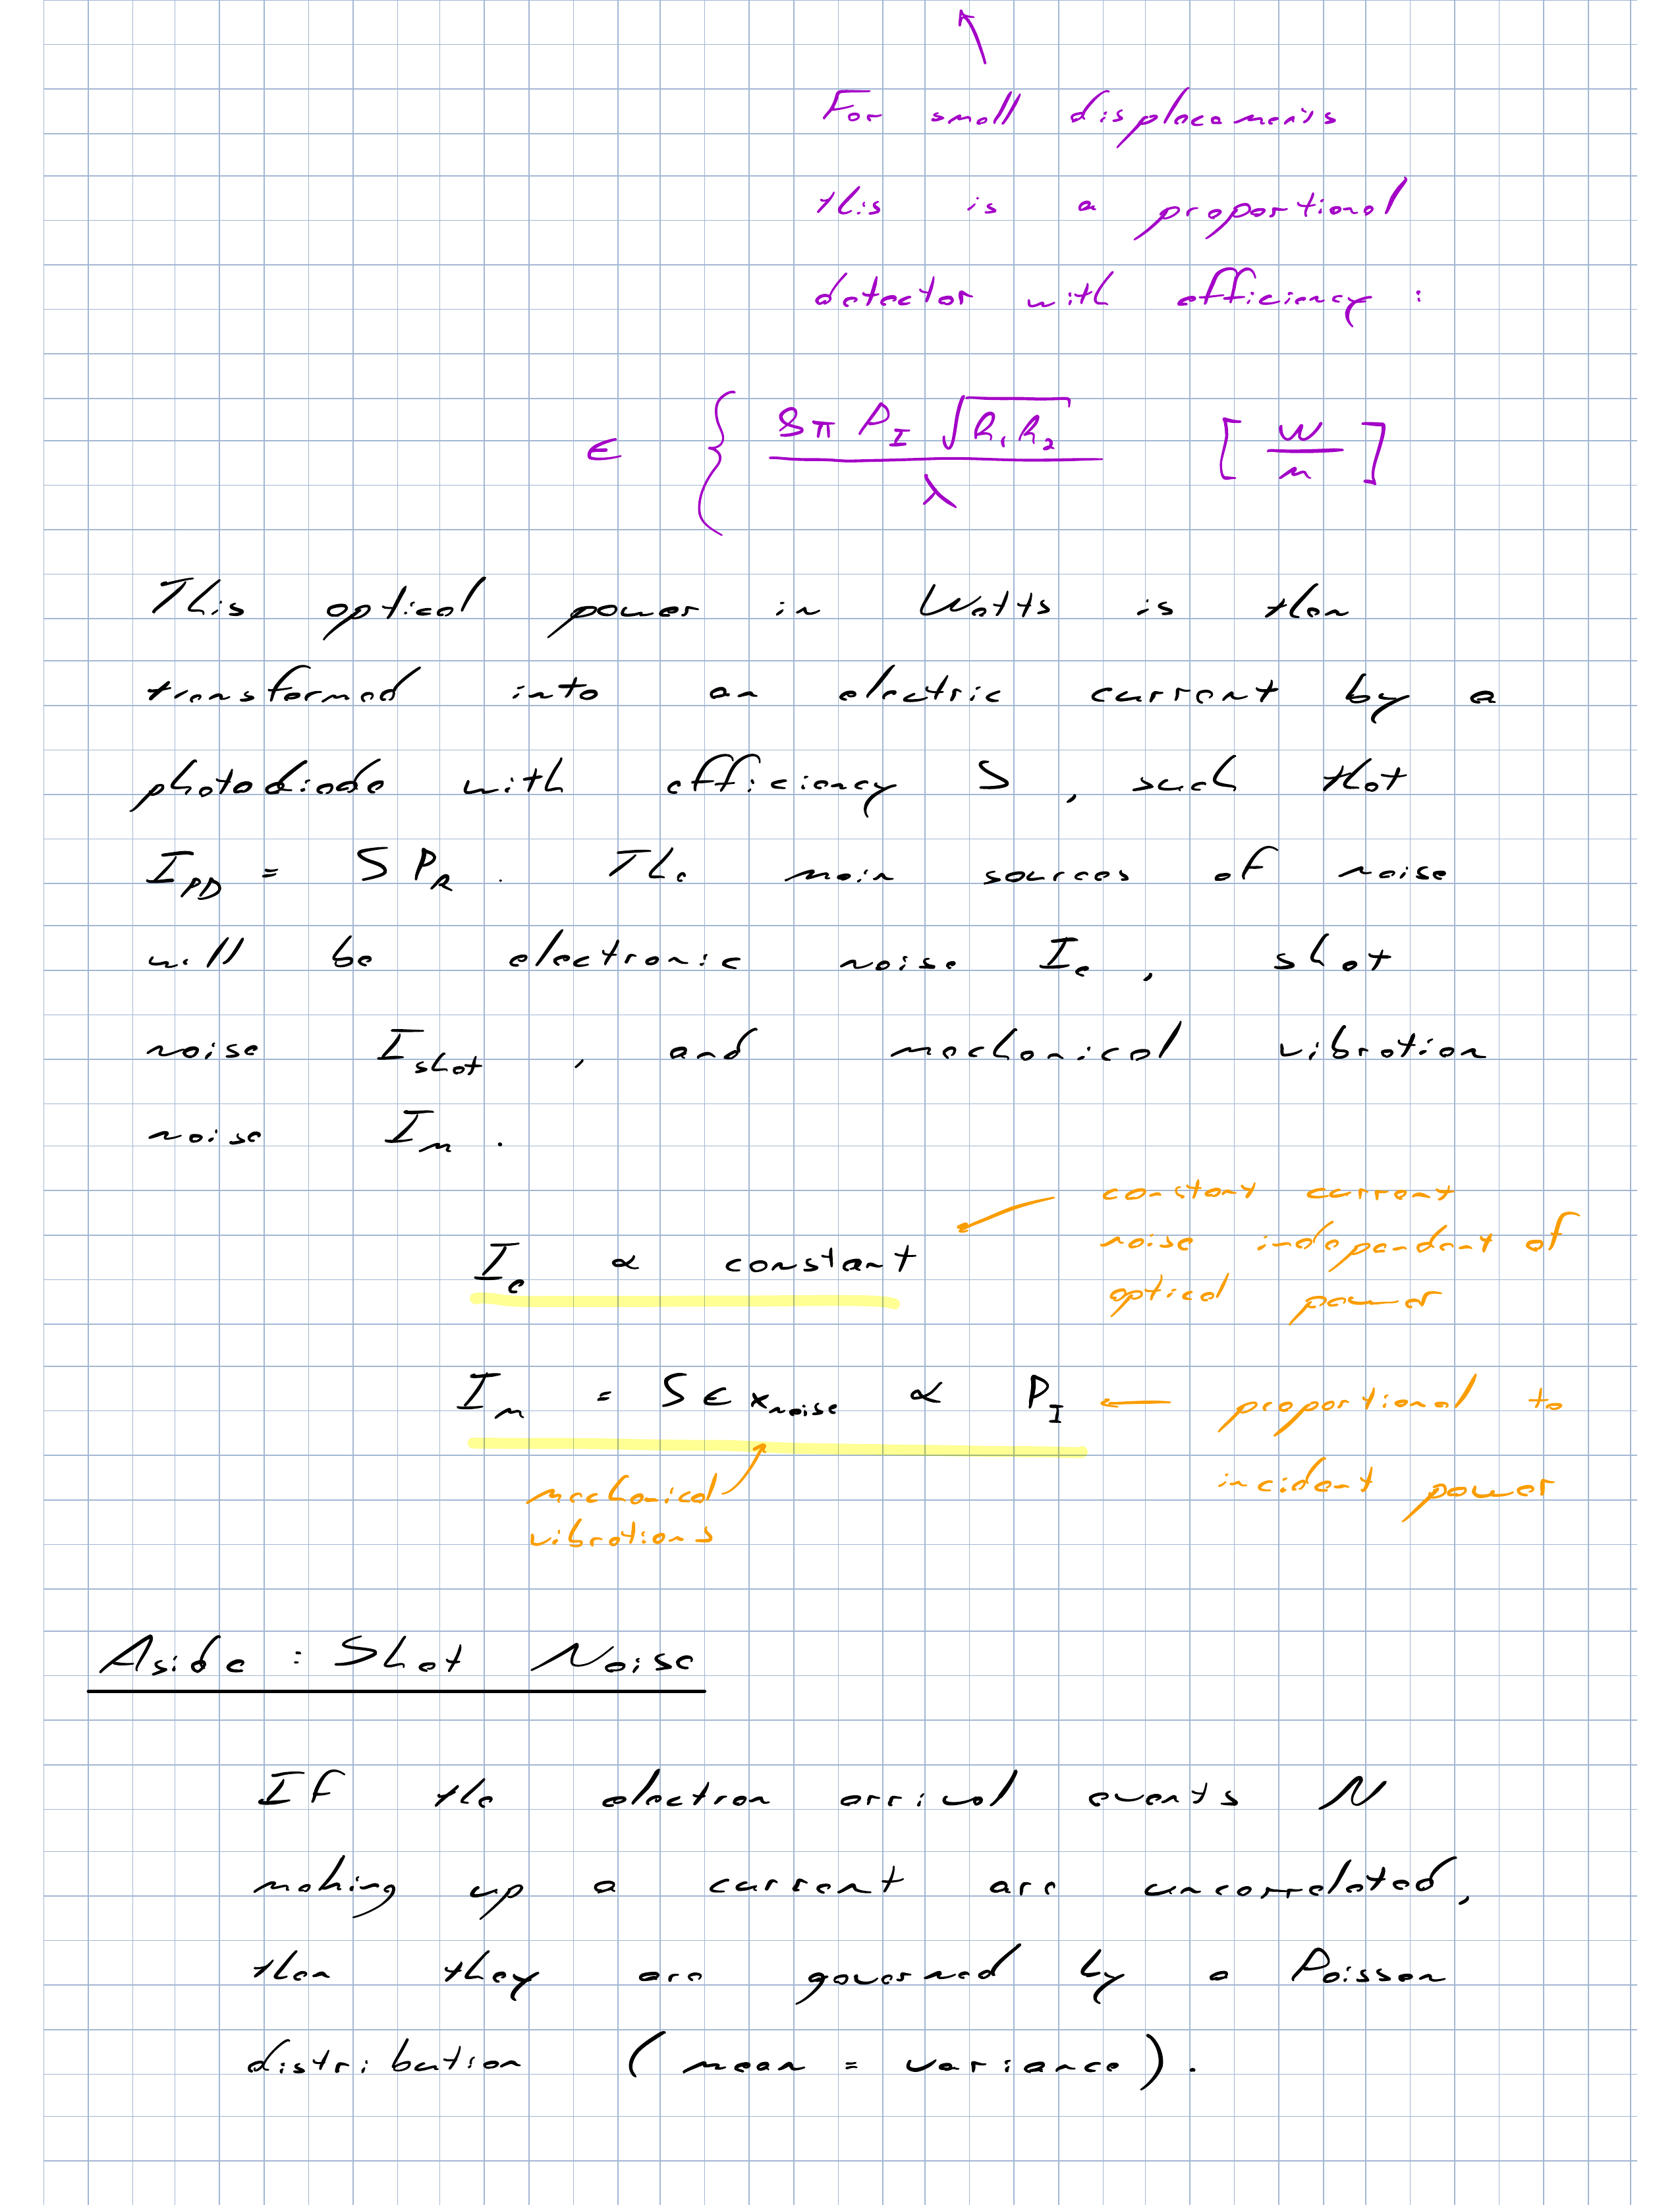 For small displacements
this is a proportional
detector with efficiency :
ϵ { 8π P_I √(R₁R₂) / λ [ W / m ]
This optical power in Watts is then
transformed into an electric current by a
photodiode with efficiency S , such that
I_PD = S P_R . The main sources of noise
will be electronic noise I_e , shot
noise I_shot , and mechanical vibration
noise I_m .
constant current
noise independent of
optical power
I_e ∝ constant
I_m = S ϵ x_noise ∝ P_I ← proportional to
incident power
mechanical
vibrations
Aside : Shot Noise
If the electron arrival events N
making up a current are uncorrelated,
then they are governed by a Poisson
distribution ( mean = variance ) .